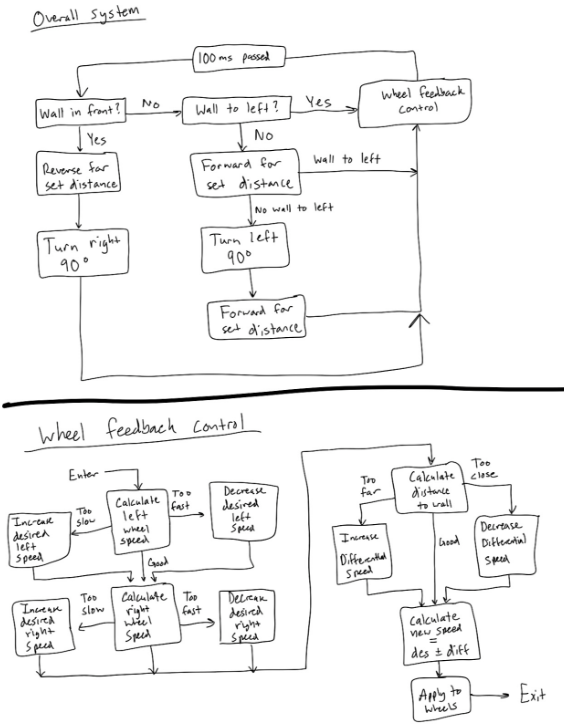 Overall System
100ms passed
Wall in front?
No
Wall to left?
Yes
Wheel feedback
control
Yes
No
Reverse for
set distance
Forward for
set distance
Wall to left
No wall to left
Turn right
90°
Turn left
90°
Forward for
set distance
Wheel feedback control
Enter
Calculate
left
wheel
speed
Too
slow
Increase
desired
left
speed
Too
fast
Decrease
desired
left
speed
Good
Calculate
right
wheel
speed
Too
slow
Increase
desired
right
speed
Too
fast
Decrease
desired
right
speed
Calculate
distance
to wall
Too
far
Too
close
Increase
Differential
speed
Good
Decrease
Differential
speed
Calculate
new speed
=
des ± diff
Apply to
wheels
Exit